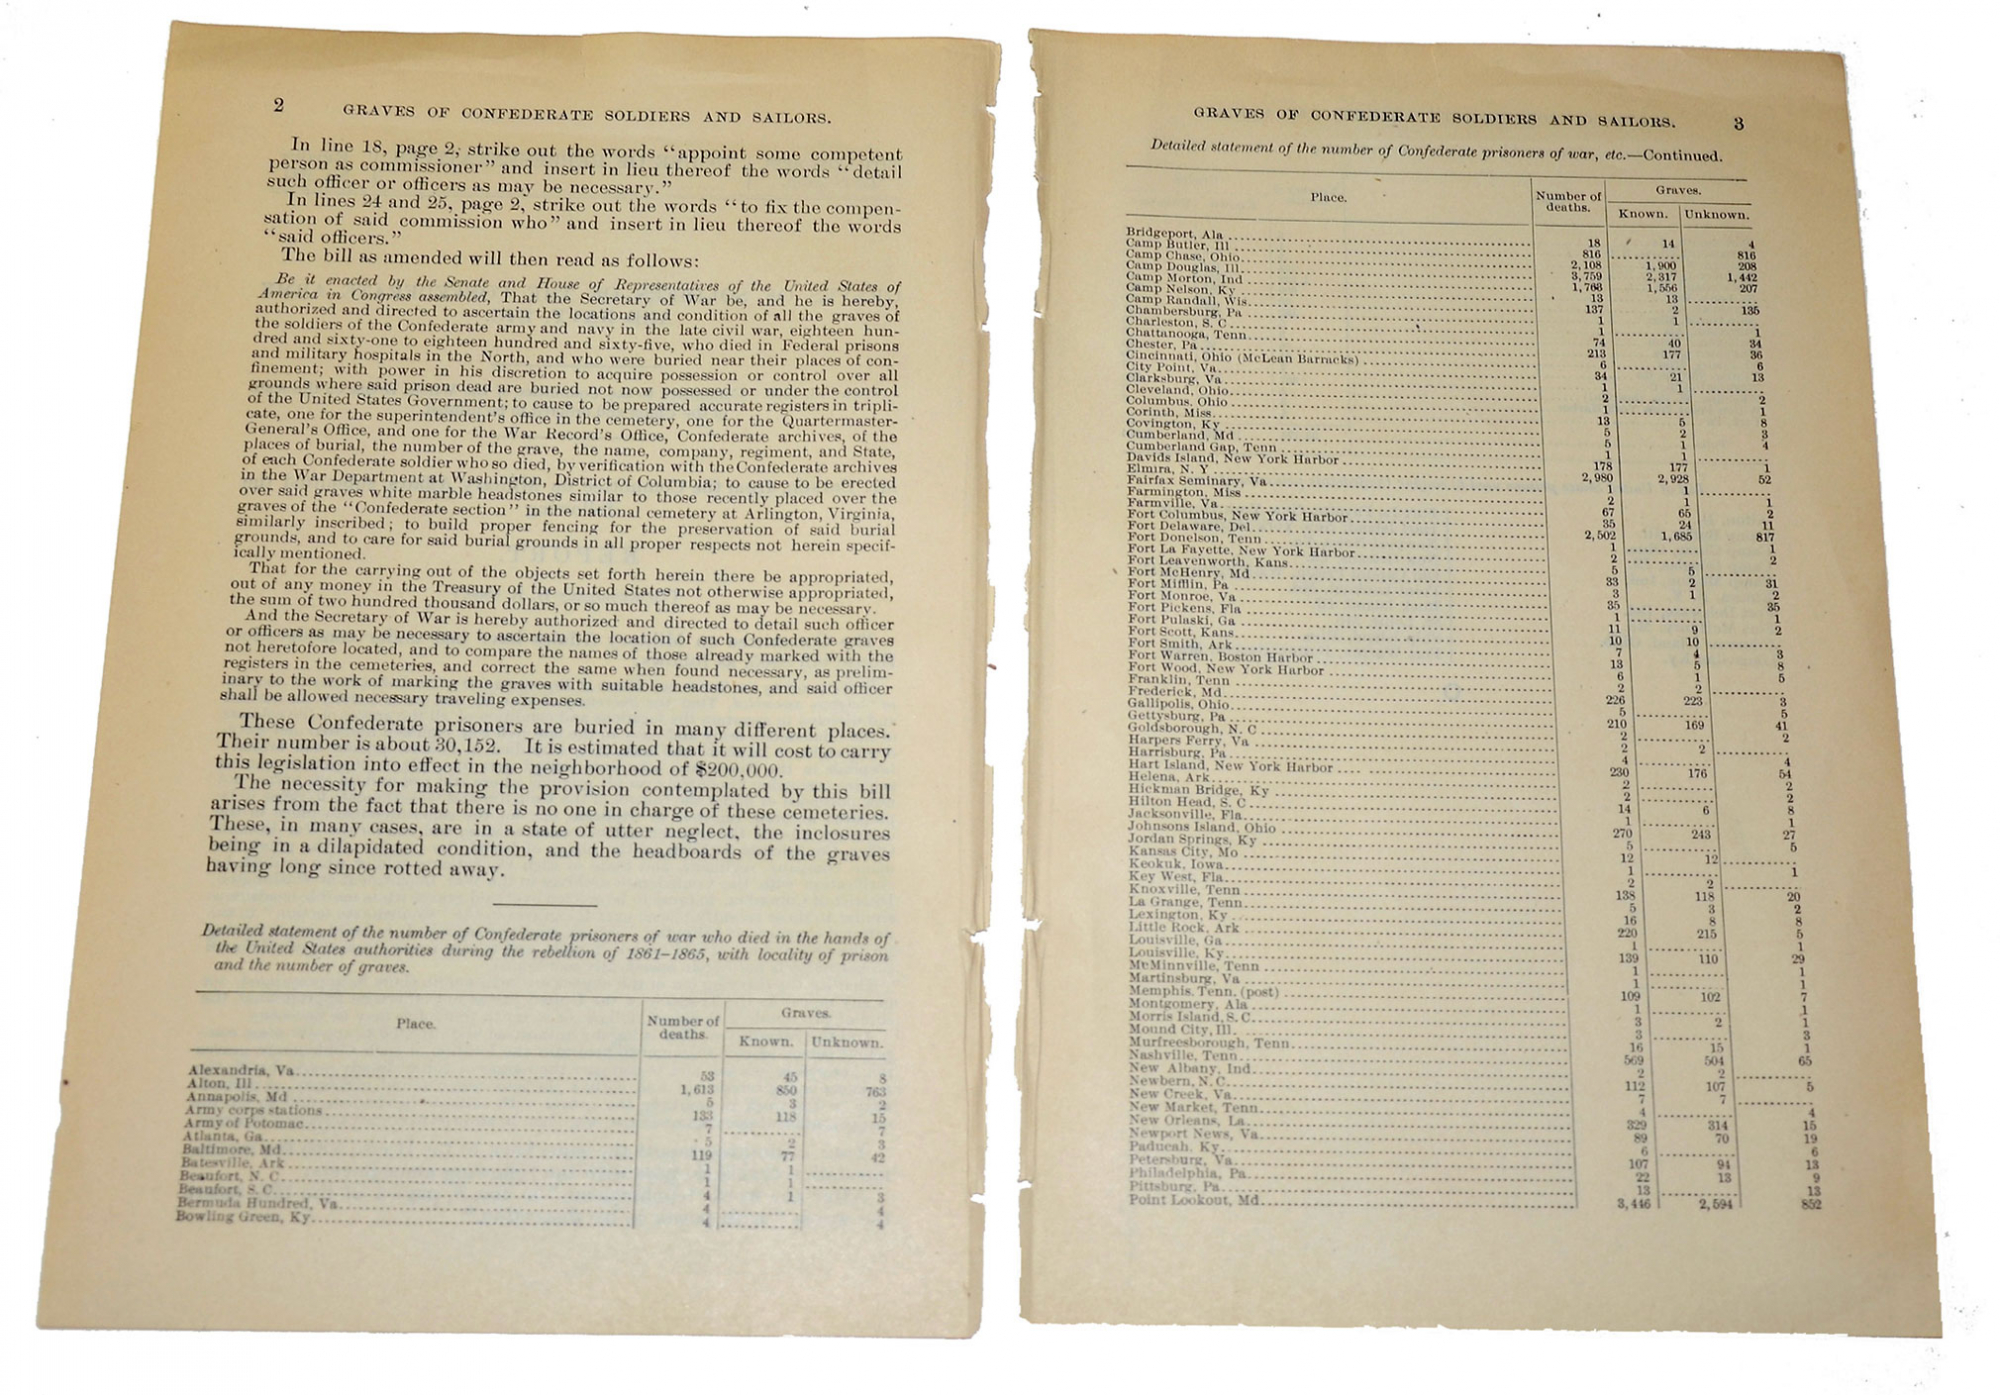 2 GRAVES OF CONFEDERATE SOLDIERS AND SAILORS.
In line 18, page 2, strike out the words "appoint some competent
person as commissioner" and insert in lieu thereof the words "detail
such officer or officers as may be necessary."
In lines 24 and 25, page 2, strike out the words "to fix the compen-
sation of said commission who" and insert in lieu thereof the words
"said officers."
The bill as amended will then read as follows:
Be it enacted by the Senate and House of Representatives of the United States of
America in Congress assembled, That the Secretary of War be, and he is hereby,
authorized and directed to ascertain the locations and condition of all the graves of
the soldiers of the Confederate army and navy in the late civil war, eighteen hun-
dred and sixty-one to eighteen hundred and sixty-five, who died in Federal prisons
and military hospitals in the North, and who were buried near their places of con-
finement; with power in his discretion to acquire possession or control over all
grounds where said prison dead are buried not now possessed or under the control
of the United States Government; to cause to be prepared accurate registers in tripli-
cate, one for the superintendent's office in the cemetery, one for the Quartermaster-
General's Office, and one for the War Record's Office, Confederate archives, of the
places of burial, the number of the grave, the name, company, regiment, and State,
of each Confederate soldier who so died, by verification with the Confederate archives
in the War Department at Washington, District of Columbia; to cause to be erected
over said graves white marble headstones similar to those recently placed over the
graves of the "Confederate section" in the national cemetery at Arlington, Virginia,
similarly inscribed; to build proper fencing for the preservation of said burial
grounds, and to care for said burial grounds in all proper respects not herein specif-
ically mentioned.
That for the carrying out of the objects set forth herein there be appropriated,
out of any money in the Treasury of the United States not otherwise appropriated,
the sum of two hundred thousand dollars, or so much thereof as may be necessary.
And the Secretary of War is hereby authorized and directed to detail such officer
or officers as may be necessary to ascertain the location of such Confederate graves
not heretofore located, and to compare the names of those already marked with the
registers in the cemeteries, and correct the same when found necessary, as prelim-
inary to the work of marking the graves with suitable headstones, and said officer
shall be allowed necessary traveling expenses.
These Confederate prisoners are buried in many different places.
Their number is about 30,152. It is estimated that it will cost to carry
this legislation into effect in the neighborhood of $200,000.
The necessity for making the provision contemplated by this bill
arises from the fact that there is no one in charge of these cemeteries.
These, in many cases, are in a state of utter neglect, the inclosures
being in a dilapidated condition, and the headboards of the graves
having long since rotted away.
Detailed statement of the number of Confederate prisoners of war who died in the hands of
the United States authorities during the rebellion of 1861–1865, with locality of prison
and the number of graves.
Place. Number of deaths. Graves.
Known. Unknown.
Alexandria, Va 53 45 8
Alton, Ill 1,613 850 763
Annapolis, Md 5 3 2
Army corps stations 133 118 15
Army of Potomac 7 7
Atlanta, Ga 5 2 3
Baltimore, Md 119 77 42
Batesville, Ark 1 1
Beaufort, N. C 1 1
Beaufort, S. C 4 1 3
Bermuda Hundred, Va 4 4
Bowling Green, Ky 4 4
GRAVES OF CONFEDERATE SOLDIERS AND SAILORS. 3
Detailed statement of the number of Confederate prisoners of war, etc.—Continued.
Place. Number of deaths. Graves.
Known. Unknown.
Bridgeport, Ala 18 14 4
Camp Butler, Ill 816 816
Camp Chase, Ohio 2,108 1,900 208
Camp Douglas, Ill 3,759 2,317 1,442
Camp Morton, Ind 1,763 1,556 207
Camp Nelson, Ky 13 13
Camp Randall, Wis 137 2 135
Chambersburg, Pa 1 1
Charleston, S. C 1 1
Chattanooga, Tenn 74 40 34
Chester, Pa 213 177 36
Cincinnati, Ohio (McLean Barracks) 6 6
City Point, Va 34 21 13
Clarksburg, Va 1 1
Cleveland, Ohio 2 2
Columbus, Ohio 1 1
Corinth, Miss 13 5 8
Covington, Ky 5 2 3
Cumberland, Md 5 1 4
Cumberland Gap, Tenn 1 1
Davids Island, New York Harbor 178 177 1
Elmira, N. Y 2,980 2,928 52
Fairfax Seminary, Va 1 1
Farmington, Miss 2 1 1
Farmville, Va 67 65 2
Fort Columbus, New York Harbor 35 24 11
Fort Delaware, Del 2,502 1,685 817
Fort Donelson, Tenn 1 1
Fort La Fayette, New York Harbor 2 2
Fort Leavenworth, Kans 5 5
Fort McHenry, Md 33 2 31
Fort Mifflin, Pa 3 1 2
Fort Monroe, Va 35 35
Fort Pickens, Fla 1 1
Fort Pulaski, Ga 11 9 2
Fort Scott, Kans 10 10
Fort Smith, Ark 7 4 3
Fort Warren, Boston Harbor 13 5 8
Fort Wood, New York Harbor 6 1 5
Franklin, Tenn 2 2
Frederick, Md 226 223 3
Gallipolis, Ohio 5 5
Gettysburg, Pa 210 169 41
Goldsborough, N. C 2 2
Harpers Ferry, Va 2 2
Harrisburg, Pa 4 4
Hart Island, New York Harbor 230 176 54
Helena, Ark 2 2
Hickman Bridge, Ky 2 2
Hilton Head, S. C 14 6 8
Jacksonville, Fla 1 1
Johnsons Island, Ohio 270 243 27
Jordan Springs, Ky 5 5
Kansas City, Mo 12 12
Keokuk, Iowa 1 1
Key West, Fla 2 2
Knoxville, Tenn 138 118 20
La Grange, Tenn 5 3 2
Lexington, Ky 16 8 8
Little Rock, Ark 220 215 5
Louisville, Ga 1 1
Louisville, Ky 139 110 29
McMinnville, Tenn 1 1
Martinsburg, Va 1 1
Memphis, Tenn. (post) 109 102 7
Montgomery, Ala 1 1
Morris Island, S. C 3 2 1
Mound City, Ill 3 3
Murfreesborough, Tenn 16 15 1
Nashville, Tenn 569 504 65
New Albany, Ind 2 2
Newbern, N. C 112 107 5
New Creek, Va 7 7
New Market, Tenn 4 4
New Orleans, La 329 314 15
Newport News, Va 89 70 19
Paducah, Ky 6 6
Petersburg, Va 107 94 13
Philadelphia, Pa 22 13 9
Pittsburg, Pa 13 13
Point Lookout, Md 3,446 2,594 852